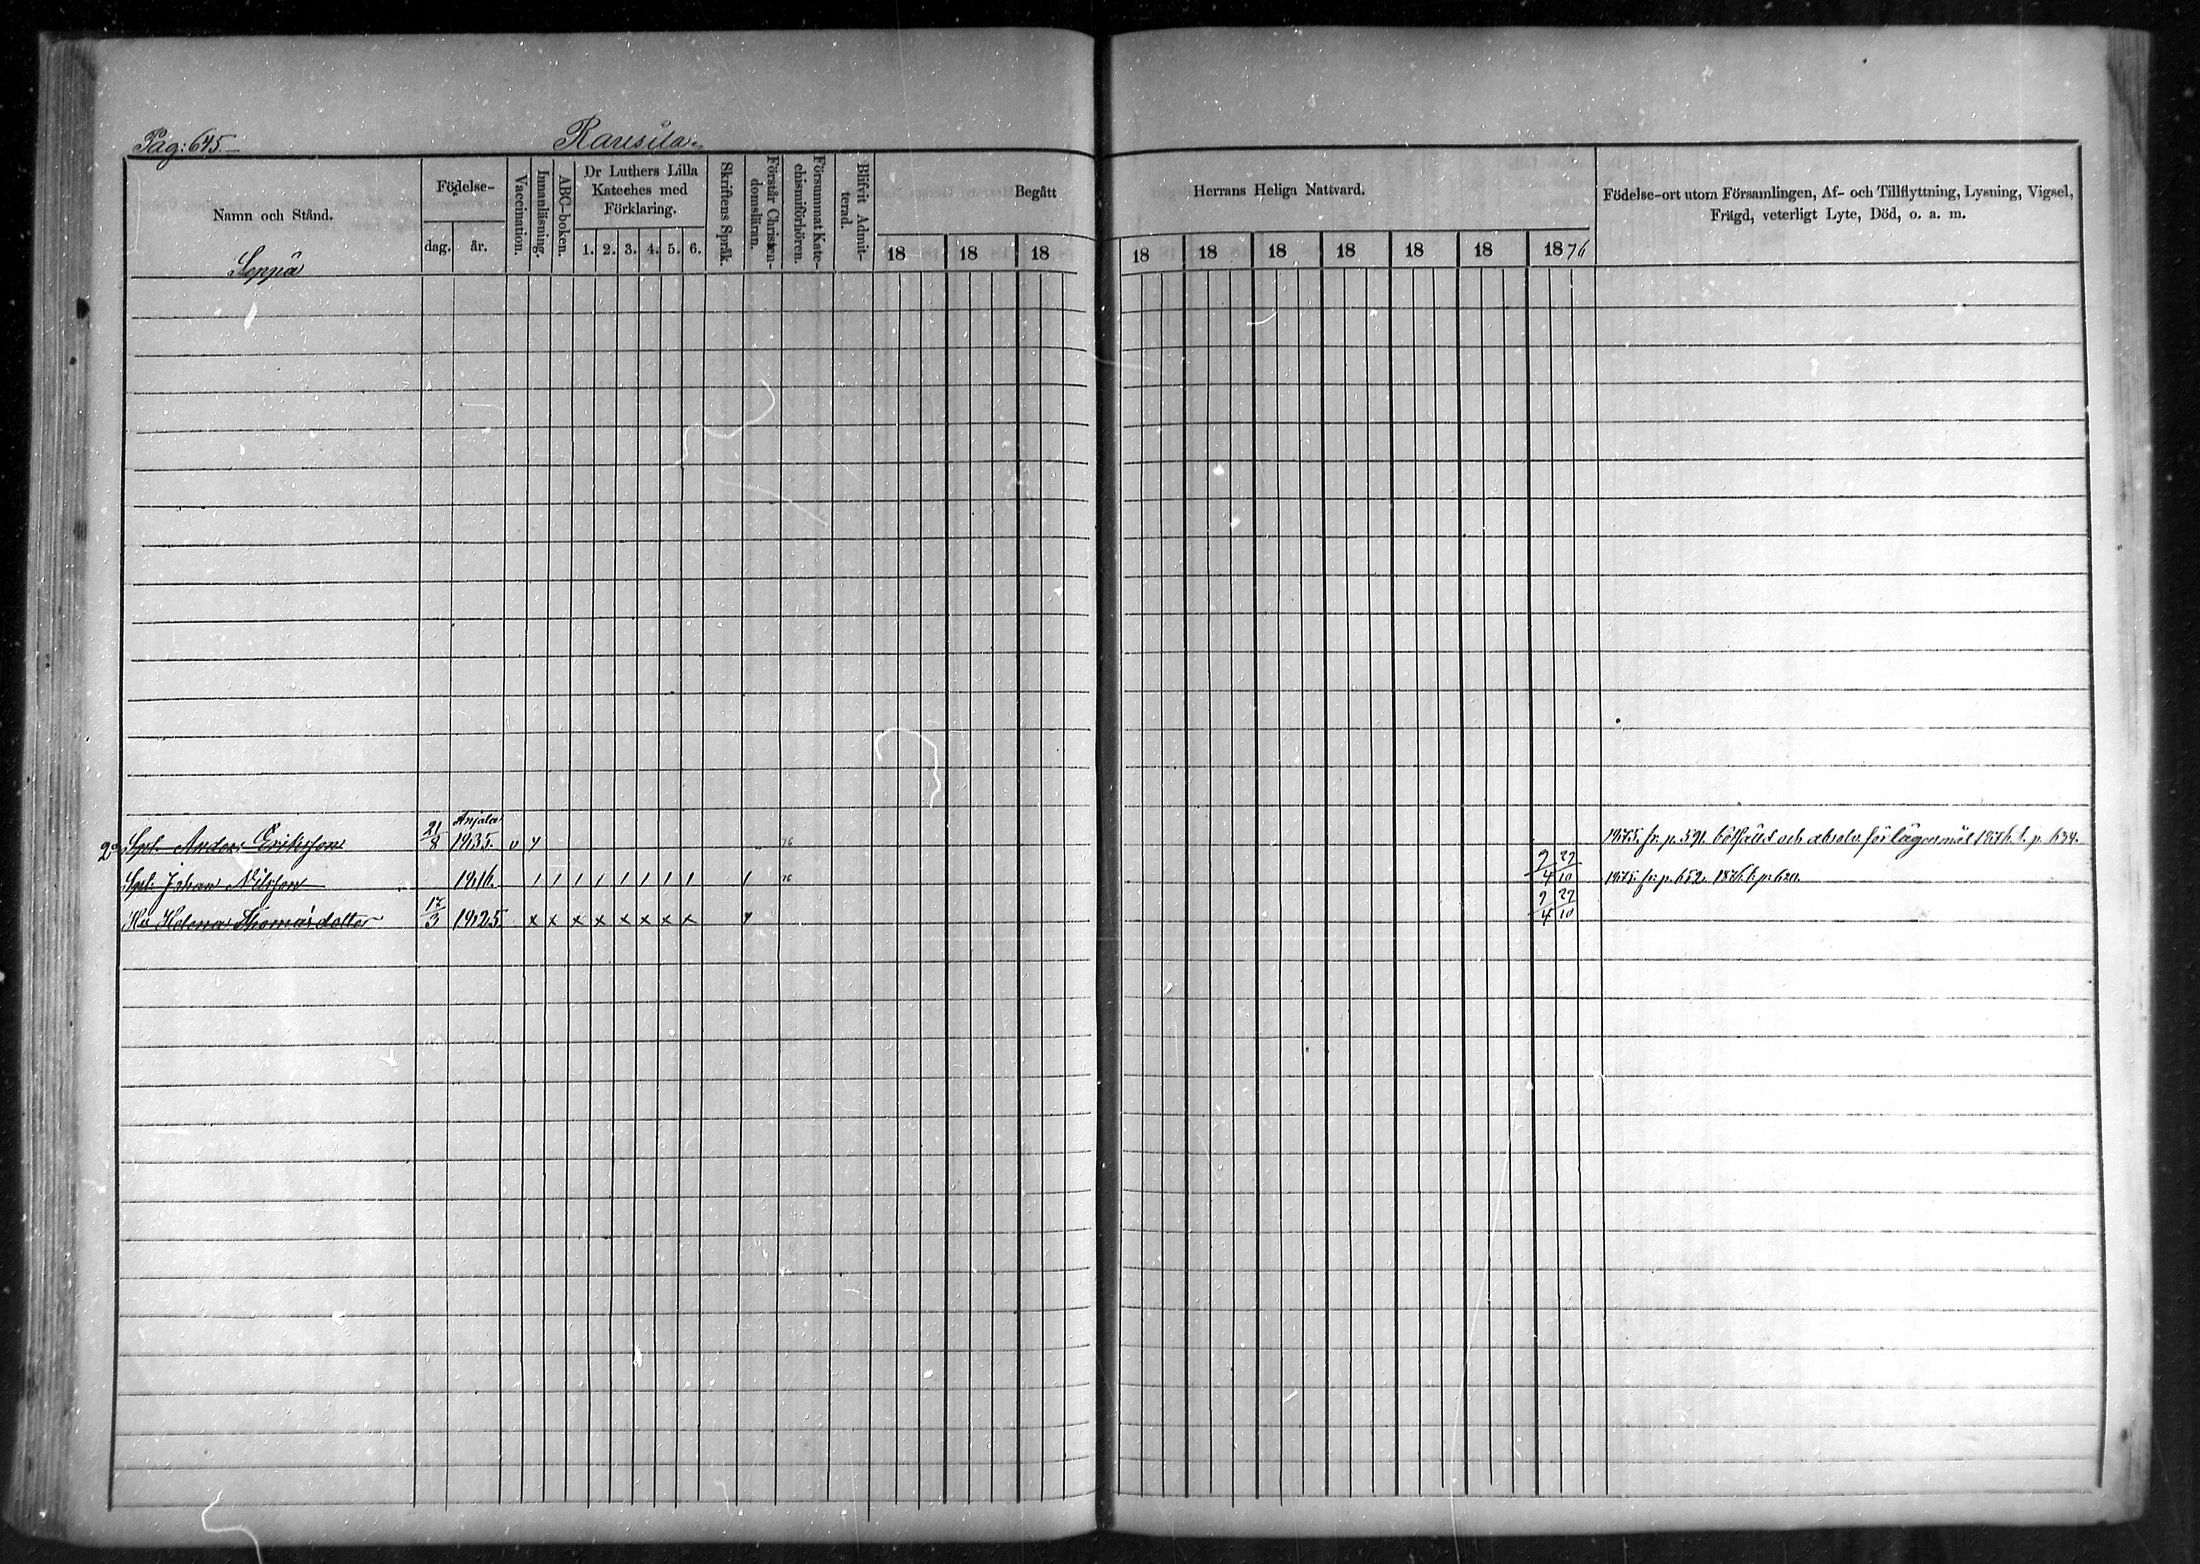 Pag: 645.
Rausila.
Namn och Stånd.
Födelse-
dag. år.
Vaccination.
Innanläsning.
ABC-boken.
Dr Luthers Lilla
Kateches med
Förklaring.
1. 2. 3. 4. 5. 6.
Skriftens Språk.
Förstår Christen-
domsläran.
Försummat Kate-
chismiförhören.
Blifvit Admit-
terad.
Begått
Herrans Heliga Nattvard.
18 18 18 18 18 18 18 18 18 1876
Födelse-ort utom Församlingen, Af- och Tillflyttning, Lysning, Vigsel,
Frägd, veterligt Lyte, Död, o. a. m.
Seppä
Anjala
Anders Eriksson 21/8 1835. v 76 1875. fr. p. 591. bötfälld och absolv. för lägersmål 1876. t. p. 634.
Johan Nilsson 1816. / / / / / / / / / 76 9/4 29/10 1875. fr. p. 652. 1876 t. p. 620.
Helena Thomasdotter 17/3 1825. x x x x x x x x 9/4 29/10